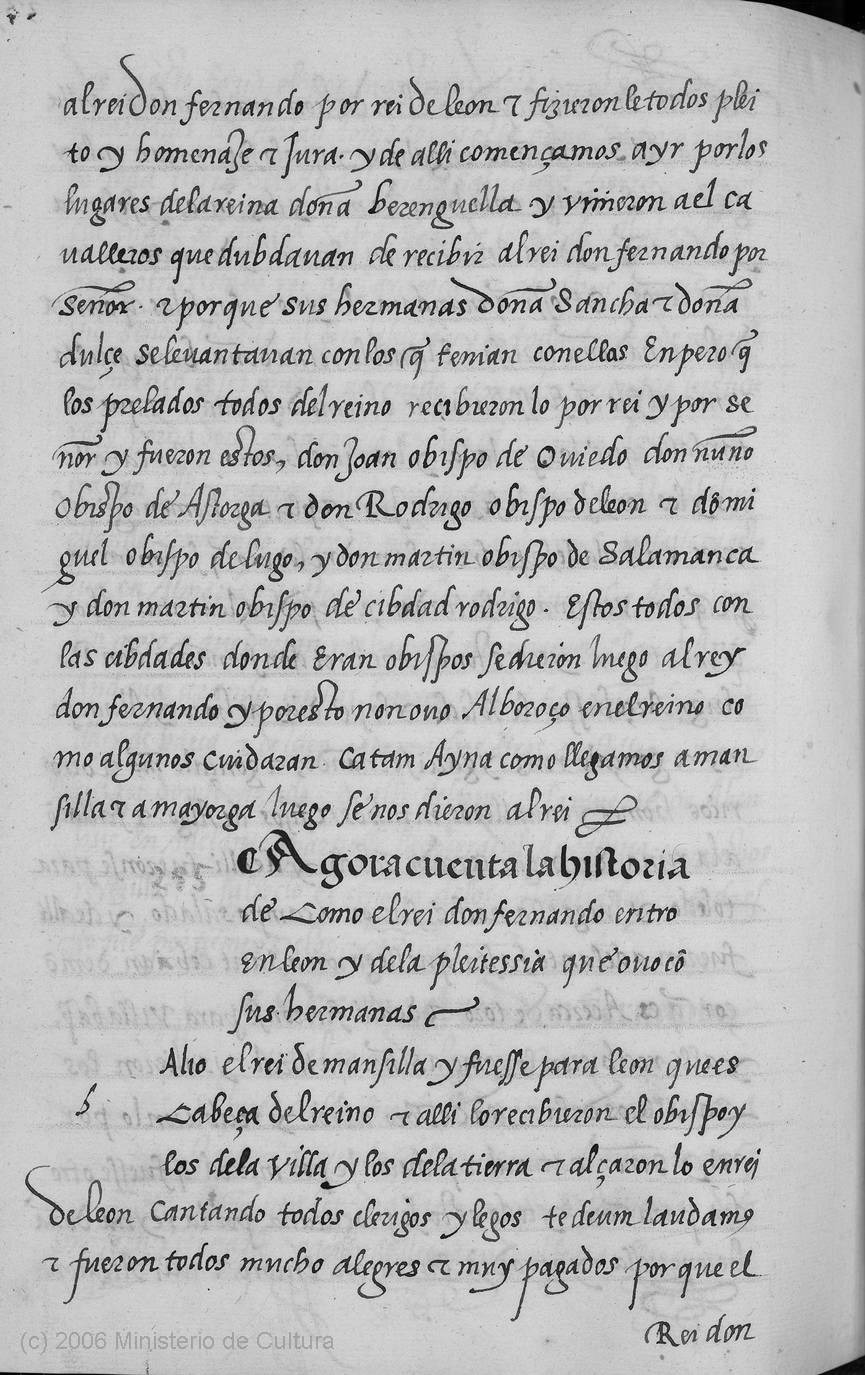 al rei don fernando por rei de leon τ fizieron le todos plei
to y homenaje τ Jura. y de alli començamos a yr por los
lugares dela reina doña berenguella y vinieron a el ca
valleros que dubdavan de recibir al rei don fernando por
señor. τ por que sus hermanas doña Sancha τ doña
dulçe se levantavan con los q̃ tenian con ellas Enpero q̃
los prelados todos del reino recibieron lo por rei y por se
ñor y fueron estos, don Joan obispo de Oviedo don nuño
Obispo de Astorga τ don Rodrigo obispo de leon τ dõ mi
guel obispo de lugo, y don martin obispo de Salamanca
y don martin obispo de cibdad rodrigo. Estos todos con
las cibdades donde Eran obispos se dieron luego al rey
don fernando y por esto non ovo Alboroço en el reino co
mo algunos cuidaran. Catam Ayna como llegamos a man
silla τ a mayorga luego se nos dieron al rei
Agora cuenta la historia
de Como el rei don fernando entro
En leon y dela pleitessia que ovo cõ
sus hermanas
Alio el rei de mansilla y fuesse para leon que es
s
Cabeça del reino τ alli lo recibieron el obispo y
los dela villa y los dela tierra τ alçaron lo en rei
de leon Cantando todos clerigos y legos te deum laudamꝰ
τ fueron todos mucho alegres τ muy pagados por que el
Rei don
(c) 2006 Ministerio de Cultura